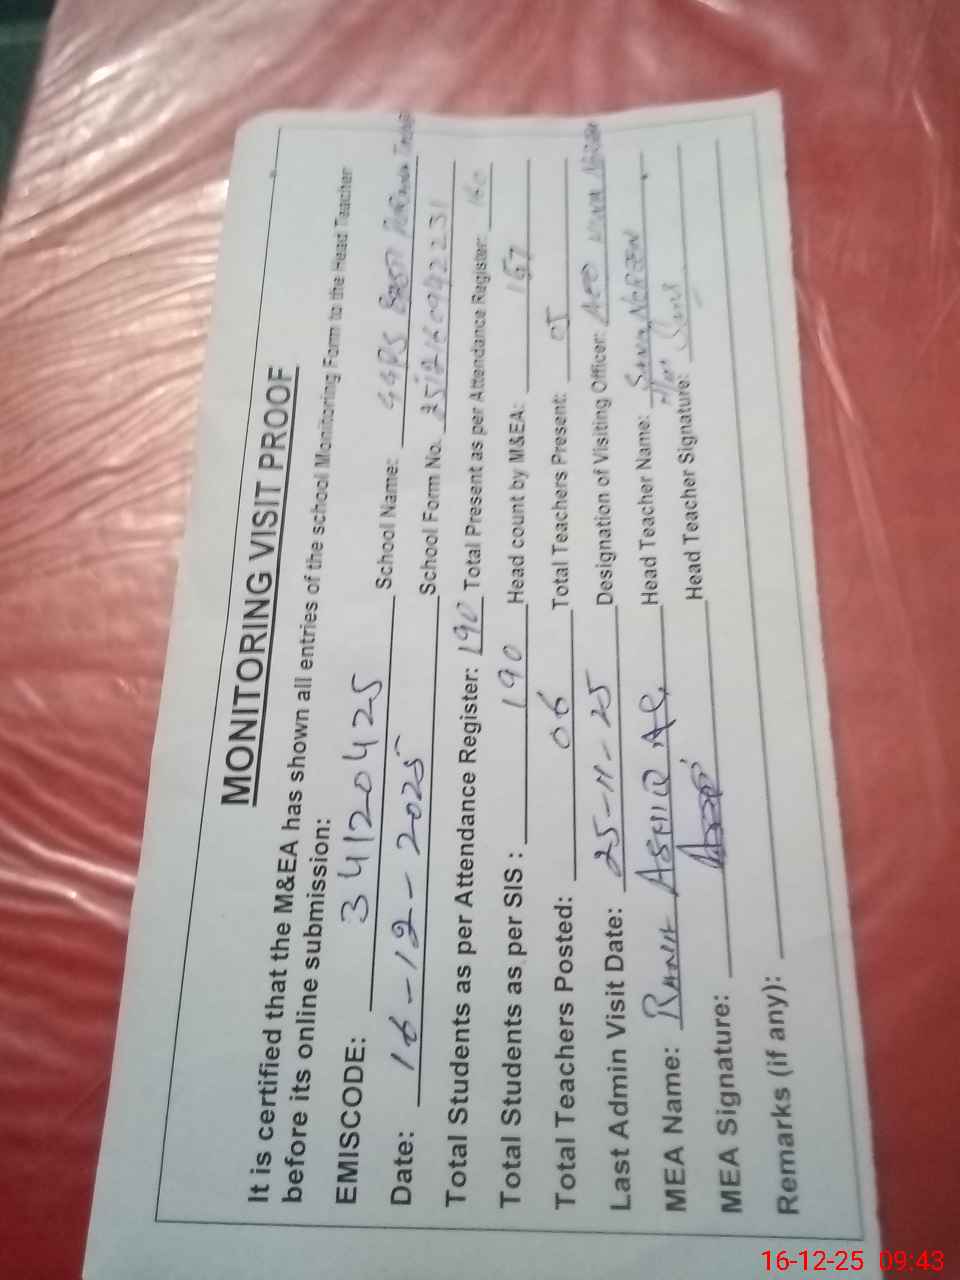 MONITORING VISIT PROOF
It is certified that the M&EA has shown all entries of the school Monitoring Form to the Head Teacher
before its online submission:
EMISCODE: 34120425 School Name: GGPS
Date: 16-12-2025 School Form No. 25121609422231
Total Students as per Attendance Register: 190 Total Present as per Attendance Register:
Total Students as per SIS : 190 Head count by M&EA: 167
Total Teachers Posted: 06 Total Teachers Present: 05
Last Admin Visit Date: 25-11-25 Designation of Visiting Officer: AEO
MEA Name: RANA ASHIQ Ali Head Teacher Name:
MEA Signature: Head Teacher Signature:
Remarks (if any):
16-12-25 09:43